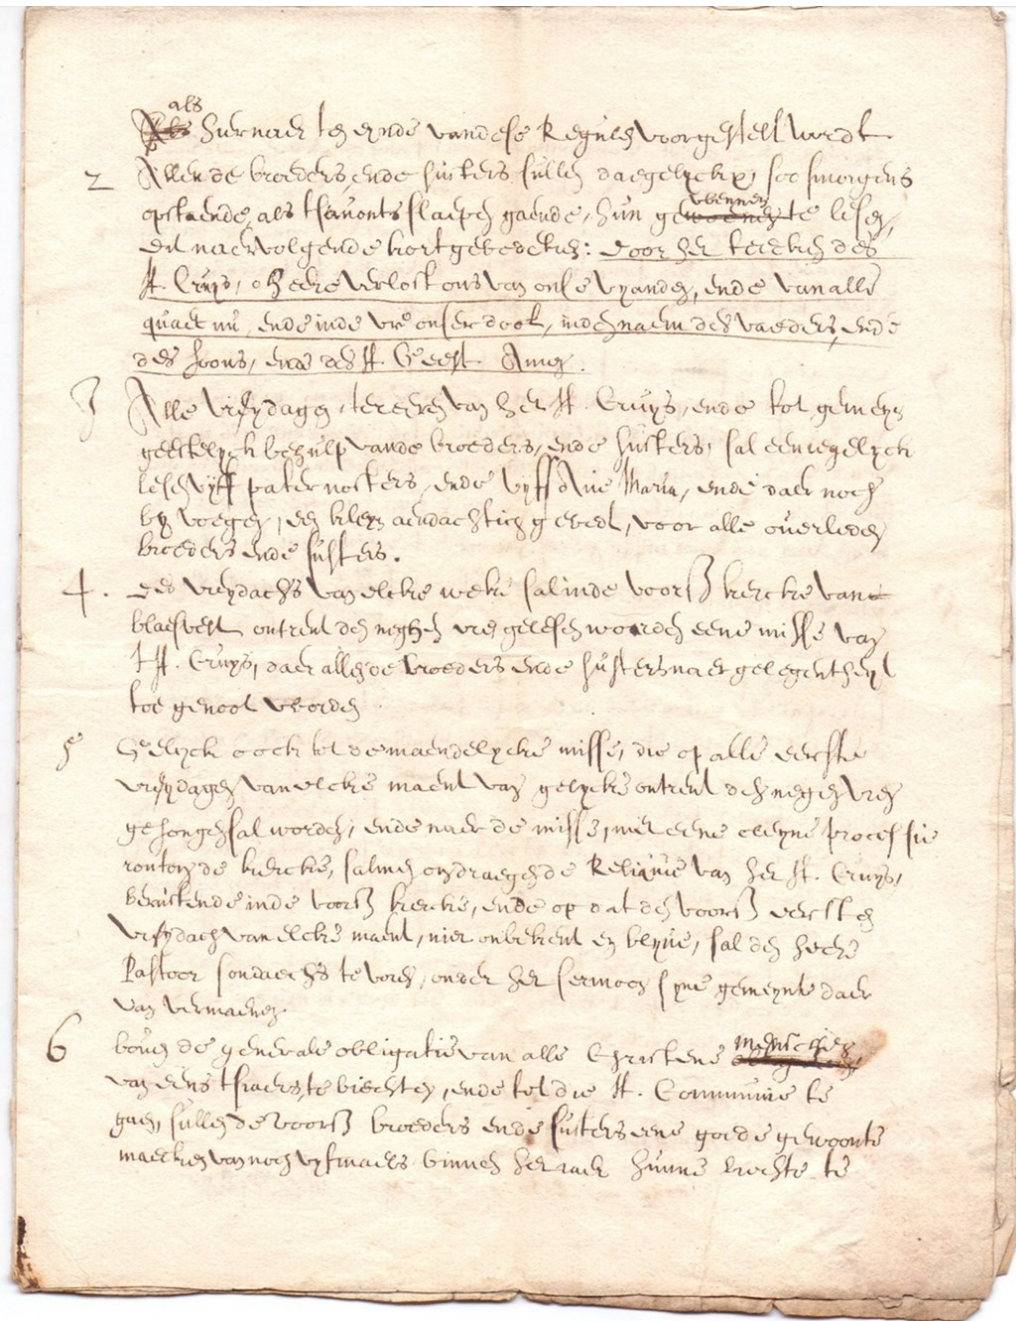 als
hiernaer ten eynde van dese Regulen voorgestelt wordt
2 Allen de broeders, ende susters sullen daegelyckx, soo smorgens
opstaende, als tsauonts slaepen gaende, hun gewennen te lesen,
dit naervolgende kort gebedeken: door het teecken des
H. Cruys, o heere verlost ons van onse vyanden, ende van alle
quaet nu, ende inde vre onser doot, inden naem des vaeders, ende
des soons, ende des H. Geest. Amen.
3 Alle vrydagen, ter eeren van het H. Cruys, ende tot gemeyn
geestelyck behulp vande broeders, ende susters, sal een iegelyck
lesen vyff pater nosters, ende vyff Aue Maria, ende daer noch
by voegen, een kleyn aendachtich gebedt, voor alle ouerleden
broeders ende susters.
4. Des vrydachs van elcke weke sal inde voors. kercke van
blaesvelt ontrent den neghen vren gelesen worden eene misse van
t H. Cruys, daer allen de broeders ende susters naer gelegentheyt
toe genoot worden
5 Gelyck oock tot de maendelycke misse, die op alle eerste
vrydagen van elcke maent van gelycke ontrent den negen vren
gesongen sal worden, ende naer de misse, met eene cleyne processie
rontom de kercke, salmen omdraegen de Reliquie van het H. Cruys,
berustende inde voors. kercke, ende op dat den voors. eersten
vrydach van elcke maent, niet onbekent en blyue, sal den heere
Pastoor sondaechs te voren, onder het sermoon syne gemeynte daer
van vermaenen.
6 bouen de generale obligatie van alle Christene menschen
van eens tsiaers, te biechten, ende tot die H. Communie te
gaen, sullen de voors. broeders ende susters eene goede gewoonte
maecken van noch vyfmaels binnen het iaer hunne biechte te